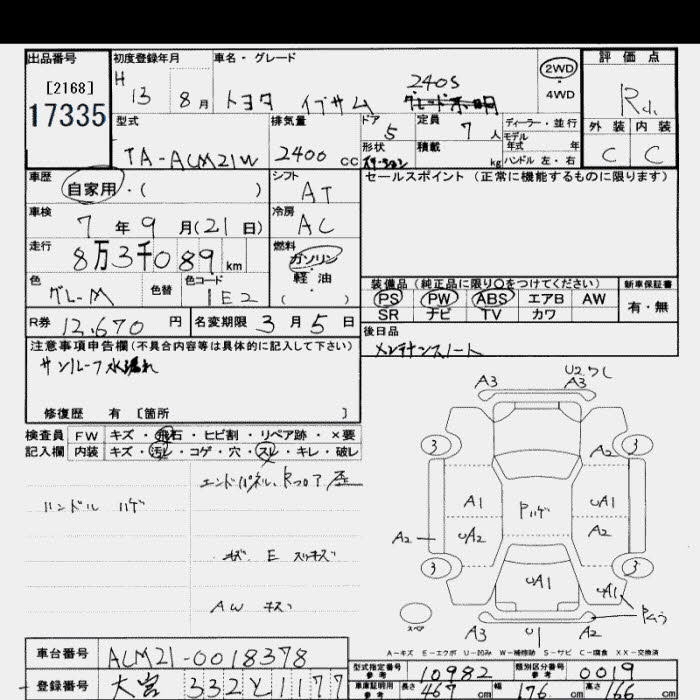 出品番号 初度登録年月 車名・グレード 評価点
[2168] H 13 8月 トヨタ イプサム 240S 2WD
17335 4WD
型式 排気量 ドア 5 定員 7人 ディーラー・並行 外装 内装
モデル年式 年
TA-ACM21W 2400cc 形状 積載 kg ハンドル 左・右 C C
車歴 シフト セールスポイント (正常に機能するものに限ります)
自家用・( ) AT
車検 冷房
7年9月(21日) AC
走行 燃料
8万3千089km ガソリン
軽油
( )
色 色替 色コード 装備品(純正品に限り○をつけてください) 新車保証書
グレーM 1E2 PS PW ABS エアB AW 有・無
SR ナビ TV カワ
R券 12,670円 名変期限 3月5日 後日品
注意事項申告欄(不具合内容等は具体的に記入して下さい) メンテナンスノート
サンルーフ水漏れ
修復歴 有 [箇所 ]
検査員 FW キズ・飛石・ヒビ割・リペア跡・×要
記入欄 内装 キズ・汚レ・コゲ・穴・スレ・キレ・破レ
エンドパネル、Rフロア
ハンドル ハゲ
AW キズ
A3 A3
3 3
A2
A1 UA1
A2 UA2 A2
3 UA1 3
UA1
スペア A3 U1 A2
A-キズ E-エクボ U-凹み W-補修跡 S-サビ C-腐食 XX-交換済
車台番号 ACM21-0018378
型式指定番号 参考 10982 類別区分番号 参考 0019
登録番号 大宮 332 と 1177
車庫証明用 参考 長さ 467cm 幅 176cm 高さ 166cm